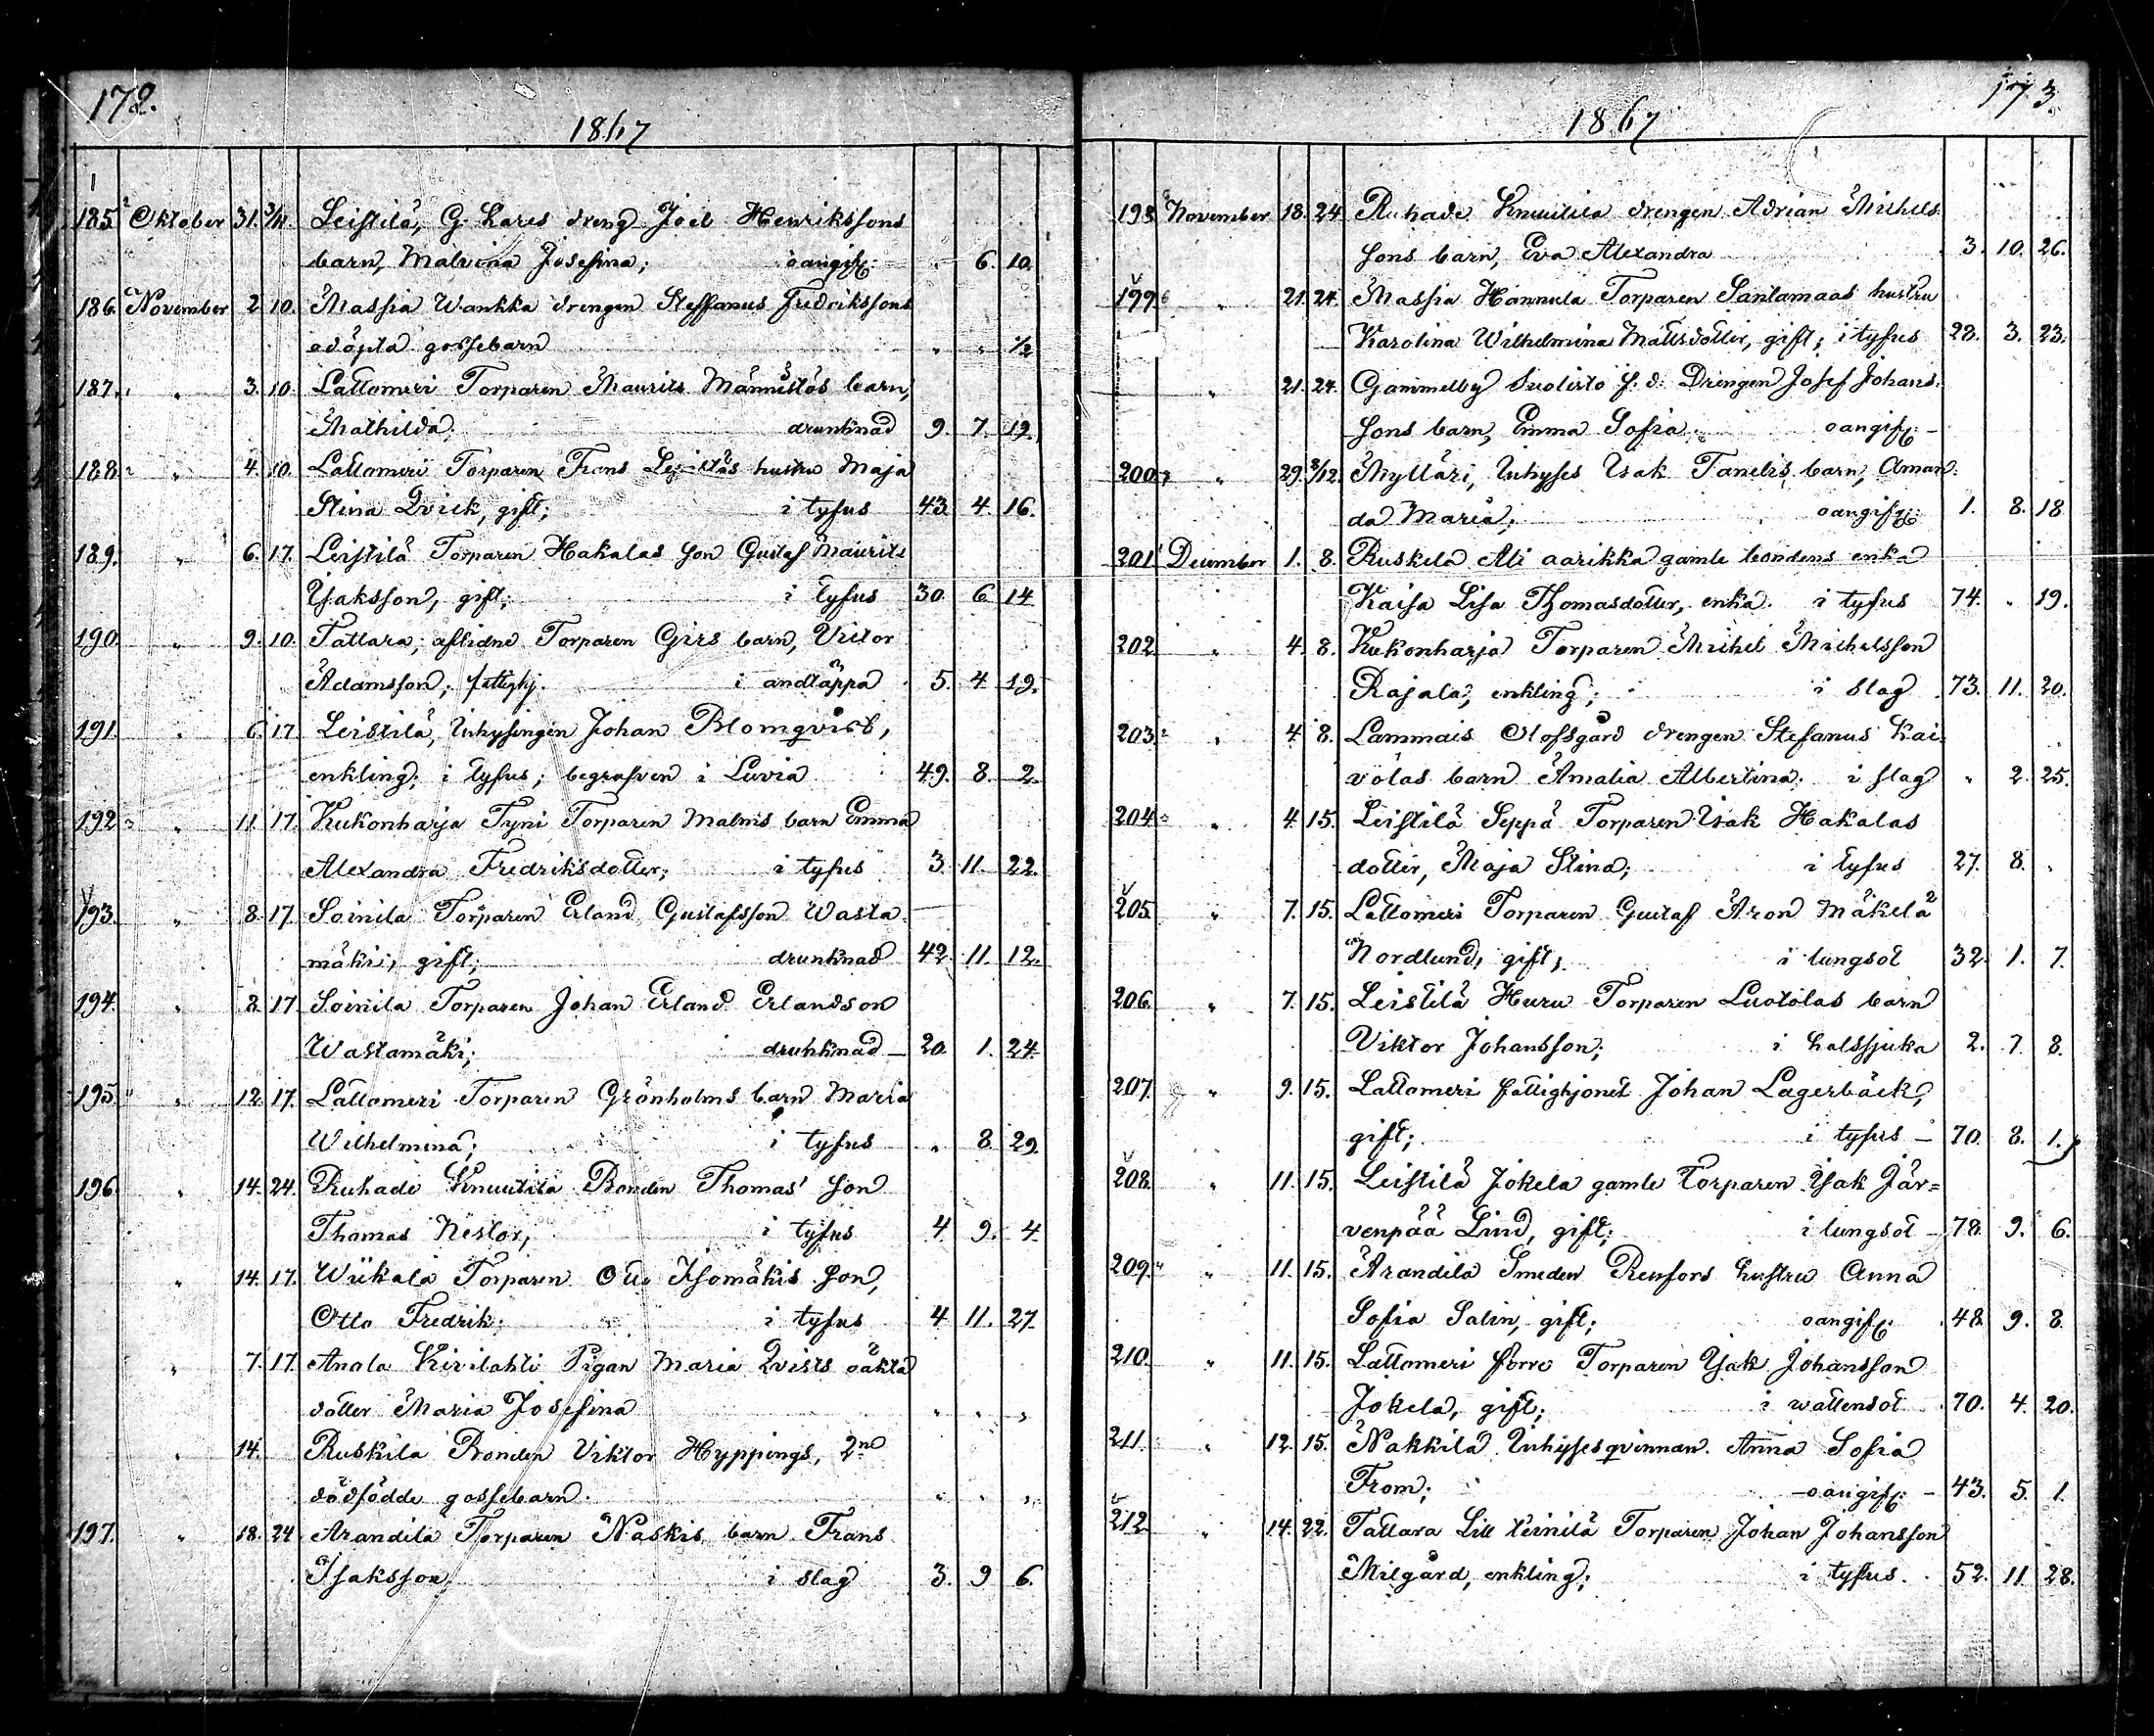 172.
1867
185. Oktober 31. 3/11. Leistilä, G. Lares dreng Joel Henrikssons
barn, Malvina Josefina; oangif: " 6. 10.
186. November 2. 10. Massia Wankka drengen Steffanus Fredrikssons
odöpta gossebarn " " 1/2
187. " 3. 10. Lattomeri Torparen Maurits Männistös barn,
Mathilda; drunknad 9. 7. 19.
188. " 4. 10. Lattomeri Torparen Frans hustru Maja
Stina Qvick, gift; i tyfus 43. 4. 16.
189. " 6. 17. Leistilä Torparen Hakalas son Gustaf Maurits
Isaksson, gift; i tyfus 30. 6. 14.
190. " 9. 10. Tattara, aflidne Torparen Girs barn, Victor
Adamsson, fattighj. i andtäppa 5. 4. 19.
191. " 6. 17. Leistilä, Inhysingen Johan Blomqvist,
enkling; i tyfus; begrafven i Luvia 49. 8. 2.
192. " 11. 17. Kukonharja Tyni Torparen Malmis barn Emma
Alexandra Fredriksdotter; i tyfus 3. 11. 22.
193. " 8. 17. Soinila Torparen Erland Gustafsson Wasta-
mäki, gift; drunknad 42. 11. 12.
194. " 8. 17. Soinila Torparen Johan Erland Erlandson
Wastamäki; drunknad 20. 1. 24.
195. " 12. 17. Lattomeri Torparen Grönholms barn Maria
Wilhelmina; i tyfus " 8. 29.
196. " 14. 24. Ruhade Knuutila Bonden Thomas' son
Thomas Nestor, i tyfus 4. 9. 4.
" 14. 17. Wiikala Torparen Otto Isomäkis son,
Otto Fredrik; i tyfus 4. 11. 27.
" 7. 17. Anola Kivilahti Pigan Maria Qvists oäkta
dotter Maria Josefina " " "
" 14. Ruskila Bonden Viktor Hyppings, 2ne
dödfödde gossebarn. " " "
197. " 18. 24. Arandila Torparen Naskis barn Frans
Isaksson, i slag 3. 9. 6.
173
1867
198. November 18. 24. Ruhade Knuutila drengen Adrian Michels-
sons barn, Eva Alexandra 3. 10. 26.
199. " 21. 24. Massia Hannula Torparen Santamaas hustru
Karolina Wilhelmina Mattsdotter, gift; i tyfus 28. 3. 23.
" 21. 24. Gammelby Suolisto f. d. Drengen Josef Johans-
sons barn, Emma Sofia; oangif: -
200. " 29. 8/12. Mylläri, Inhyses Isak Tanelis barn, Aman-
da Maria; oangif: 1. 8. 18.
201. December 1. 8. Ruskela Ali aarikka gamle bondens enka
Kaisa Lisa Thomasdotter, enka. i tyfus 74. " 19.
202. " 4. 8. Kukonharja Torparen Michel Michelsson
Rajala, enkling; i slag 73. 11. 20.
203. " 4. 8. Lammais Olofsgård drengen Stefanus Kai-
volas barn Amalia Albertina; i slag " 2. 25.
204. " 4. 15. Leistilä Seppä Torparen Isak Hakalas
dotter, Maja Stina; i tyfus 27. 8. "
205. " 7. 15. Lattomeri Torparen Gustaf Aron Mäkelä
Nordlund, gift; i lungsot 32. 1. 7.
206. " 7. 15. Leistilä Huru Torparen Luotolas barn
Viktor Johansson; i halssjuka 2. 7. 8.
207. " 9. 15. Lattomeri fattighjonet Johan Lagerbäck,
gift; i tyfus - 70. 8. 1.
208. " 11. 15. Leistilä Jokela gamle Torparen Isak Jär-
venpää Lind, gift; i lungsot - 78. 9. 6.
209. " 11. 15. Arandila Smeden Renfors hustru Anna
Sofia Salin, gift; oangif: 48. 9. 8.
210. " 11. 15. Lattomeri förre Torparen Isak Johansson
Jokela, gift; i wattensot 70. 4. 20.
211. " 12. 15. Nakkila Inhysesqvinnan Anna Sofia
From; oangif: - 43. 5. 1.
212. " 14. 22. Tattara Lill Torparen Johan Johansson
Milgård, enkling; i tyfus. 52. 11. 28.